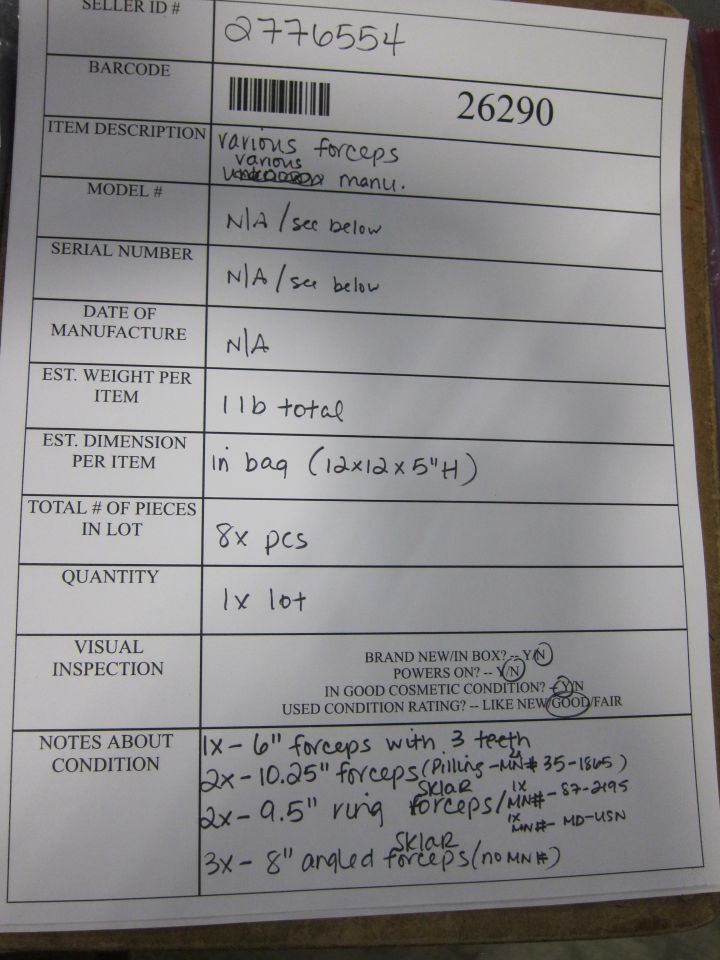 SELLER ID #
2776554
BARCODE
26290
ITEM DESCRIPTION
various forceps
various
manu.
MODEL #
N/A / see below
SERIAL NUMBER
N/A / see below
DATE OF
MANUFACTURE
N/A
EST. WEIGHT PER
ITEM
1 lb total
EST. DIMENSION
PER ITEM
in bag (12x12x5"H)
TOTAL # OF PIECES
IN LOT
8x pcs
QUANTITY
1x lot
VISUAL
INSPECTION
BRAND NEW/IN BOX? -- Y/N
POWERS ON? -- Y/N
IN GOOD COSMETIC CONDITION? -- Y/N
USED CONDITION RATING? -- LIKE NEW/GOOD/FAIR
NOTES ABOUT
CONDITION
1x - 6" forceps with 3 teeth
2x - 10.25" forceps (Pilling - MN# 35-1865)
2x - 9.5" ring SKlAR forceps / 1x MN# - 87-2195
1x MN# - MD-USN
3x - 8" angled SKlAR forceps (no MN#)